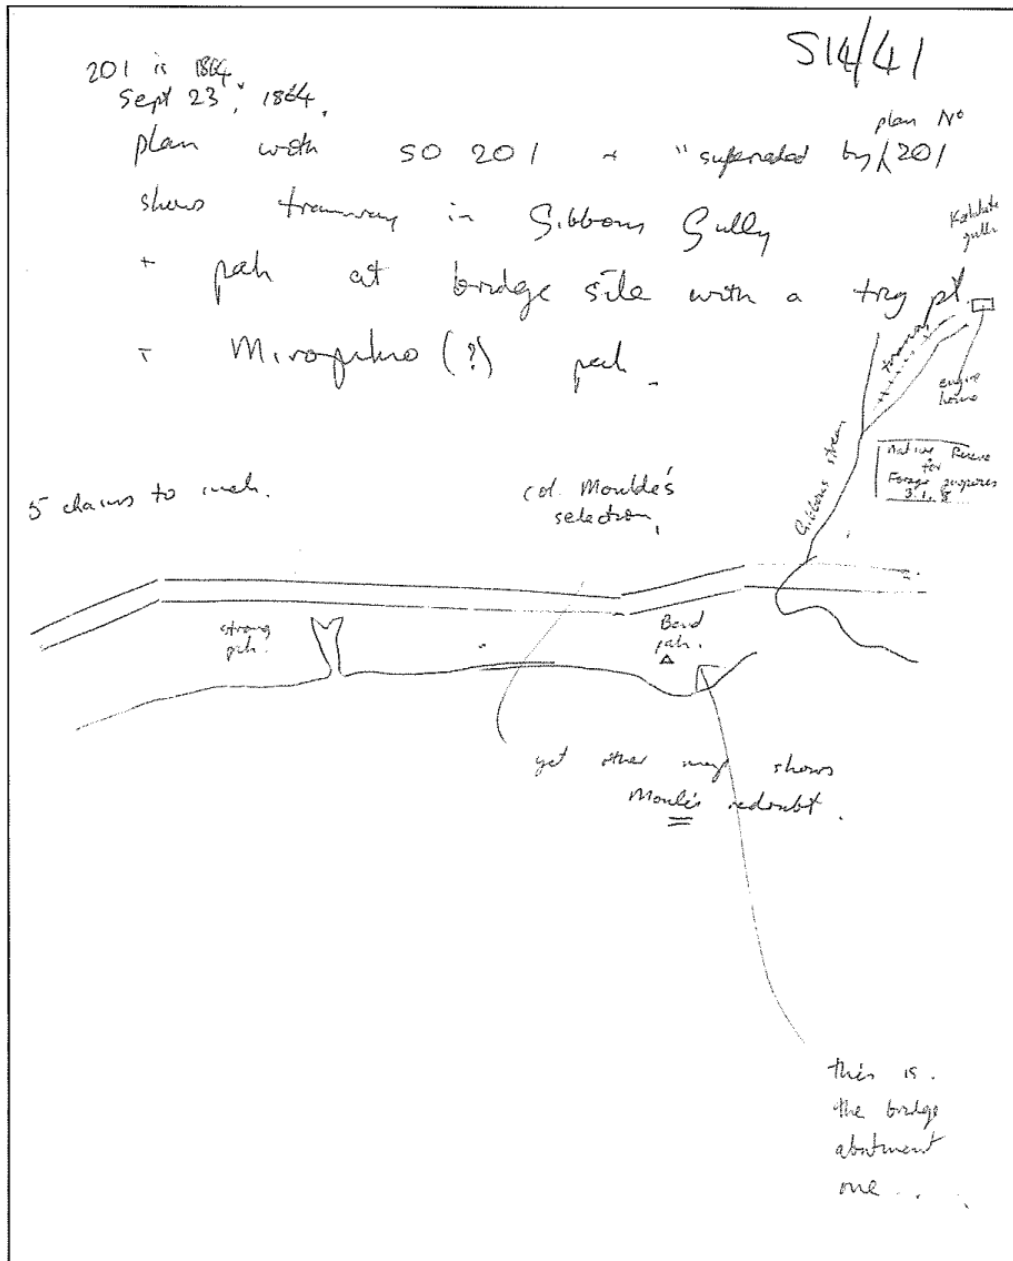 S14/41
201 is 1864
Sept 23, 1864.
plan No
plan with SO 201 + "superseded by 201
shows tramway in Gibbons Gully
+ pah at bridge site with a trig pt.
+ (?) pah.
gully
tramway
engine
house
Gibbons stream
Native Reserve
for
Forage purposes
3.1.8
5 chains to inch.
Col. Moulde's
selection,
strong
pah.
Bend
pah.
yet other map shows
Moule's redoubt.
this is.
the bridge
abutment
one...